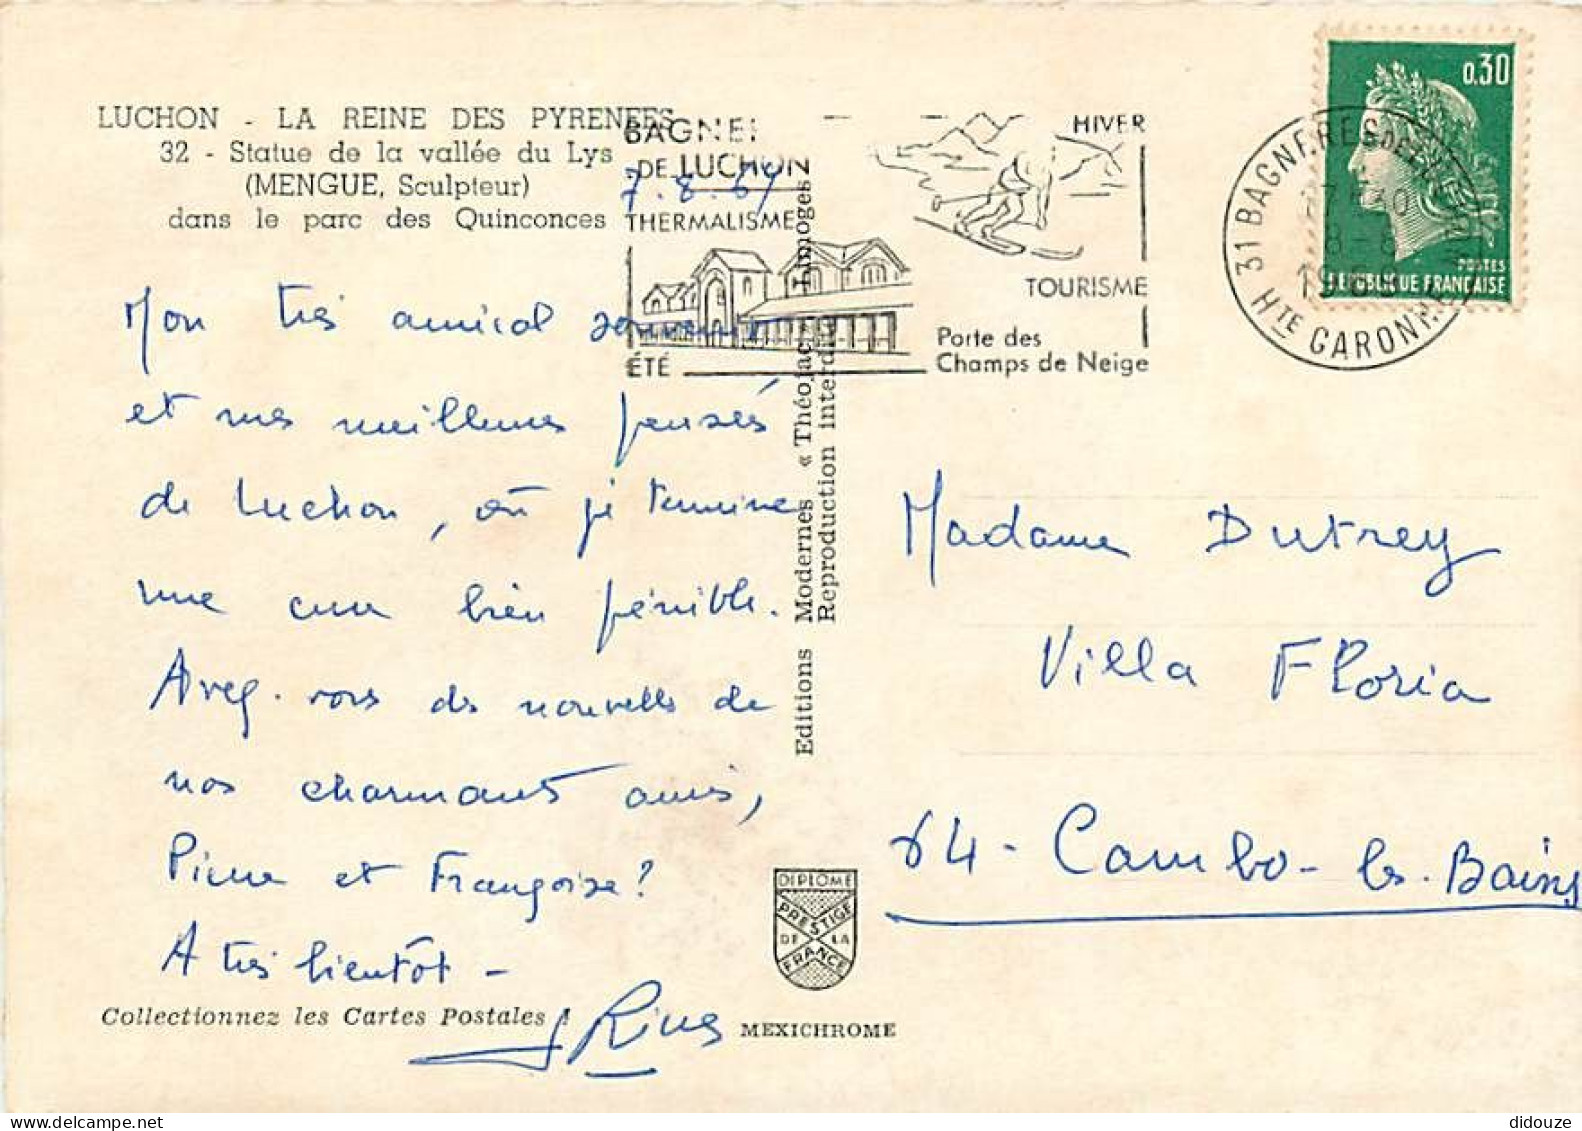 LUCHON - LA REINE DES PYRENEES
32 - Statue de la vallée du Lys
(MENGUE, Sculpteur)
dans le parc des Quinconces
7.8.69
BAGNE
DE LUCHON
THERMALISME
ÉTÉ
HIVER
TOURISME
Porte des
Champs de Neige
31 BAGNERES DE LUCHON
Hte GARONNE
0,30
POSTES
REPUBLIQUE FRANÇAISE
Mon très amical souvenir
et mes meilleures pensées
de Luchon, où je termine
une cure bien pénible.
Avez-vous des nouvelles de
nos charmants amis,
Pierre et Françoise?
A très bientôt -
Editions Modernes « Théojac » Limoges
Reproduction interdite
Madame Dutrey
Villa Floria
64 - Cambo-les-Bains
DIPLOME
PRESTIGE
DE LA
FRANCE
Collectionnez les Cartes Postales !
MEXICHROME
didouze